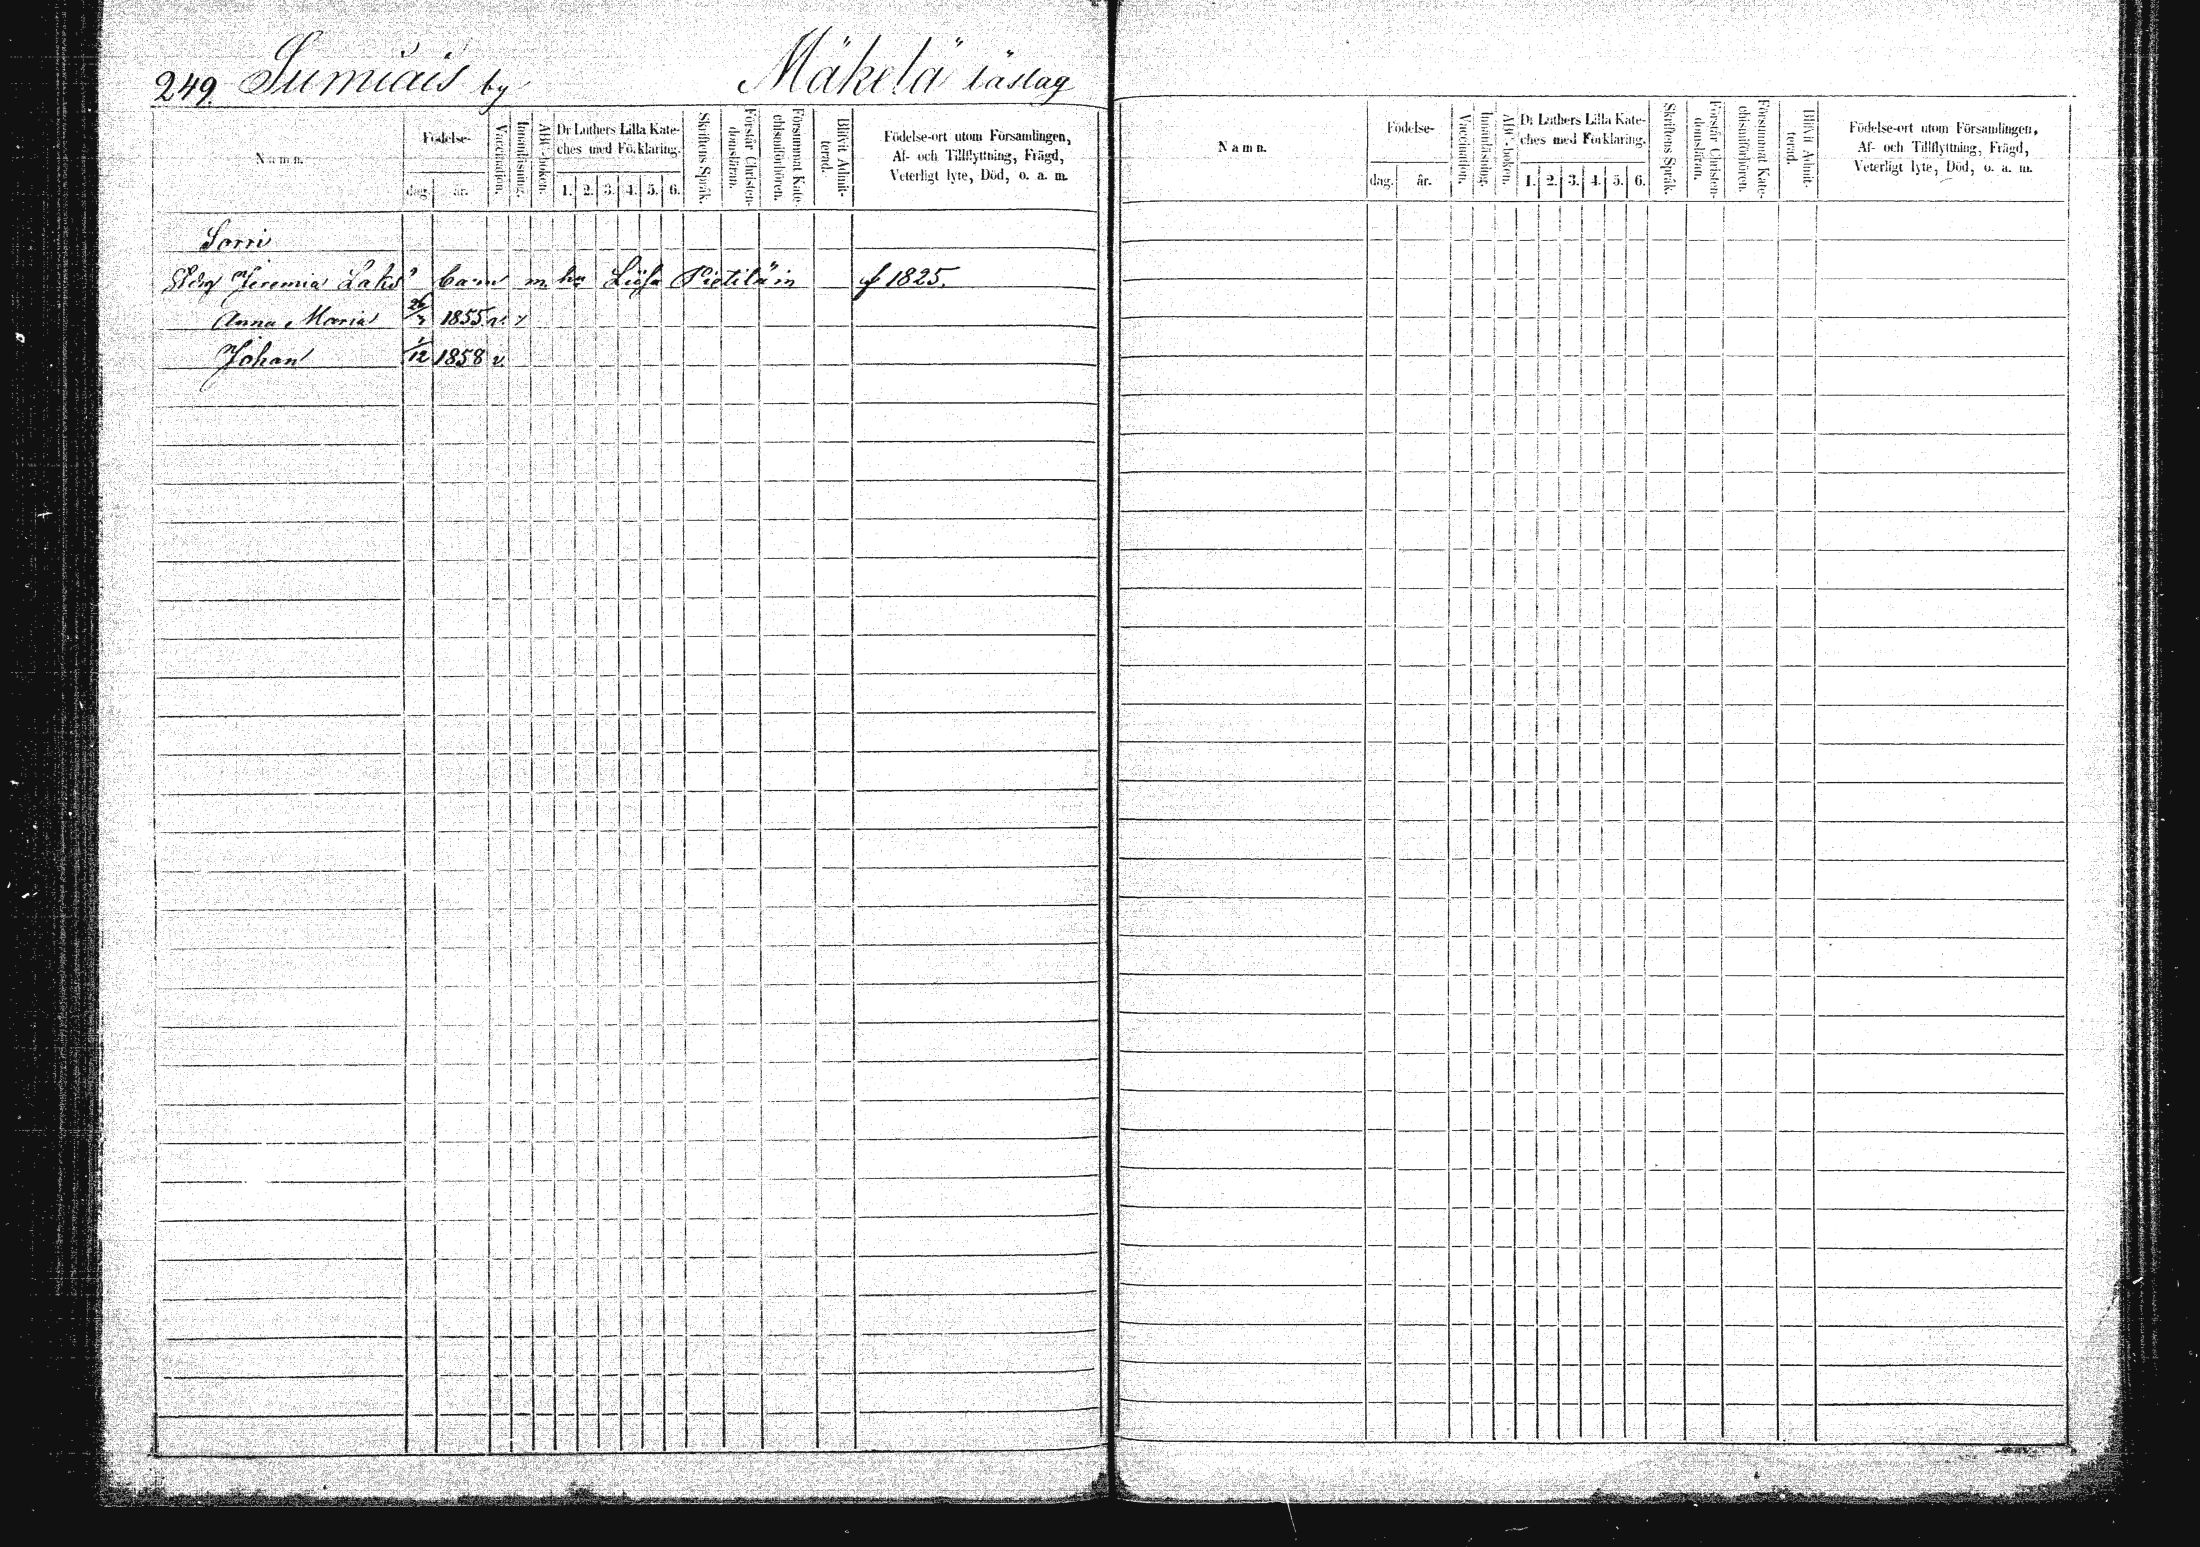 249. Sumiais by Mäkelä läslag
Namn.
Födelse-
dag.
år.
Vaccination.
Innanläsning.
ABC-boken.
Dr Luthers Lilla Kate-
ches med Förklaring.
1. 2. 3. 4. 5. 6.
Skriftens Språk.
Förstår Christen-
domsläran.
Försummat Kate-
chismiförhören.
Blifvit Admit-
terad.
Födelse-ort utom Församlingen,
Af- och Tillflyttning, Frägd,
Veterligt lyte, Död, o. a. m.
Sorri
Jeremia Laks barn m hu Liisa Pietiläin f 1825.
Anna Maria 1855 v. x
Johan 1/12 1858 v.
Namn.
Födelse-
dag.
år.
Vaccination.
Innanläsning.
ABC-boken.
Dr Luthers Lilla Kate-
ches med Förklaring.
1. 2. 3. 4. 5. 6.
Skriftens Språk.
Förstår Christen-
domsläran.
Försummat Kate-
chismiförhören.
Blifvit Admit-
terad.
Födelse-ort utom Församlingen,
Af- och Tillflyttning, Frägd,
Veterligt lyte, Död, o. a. m.